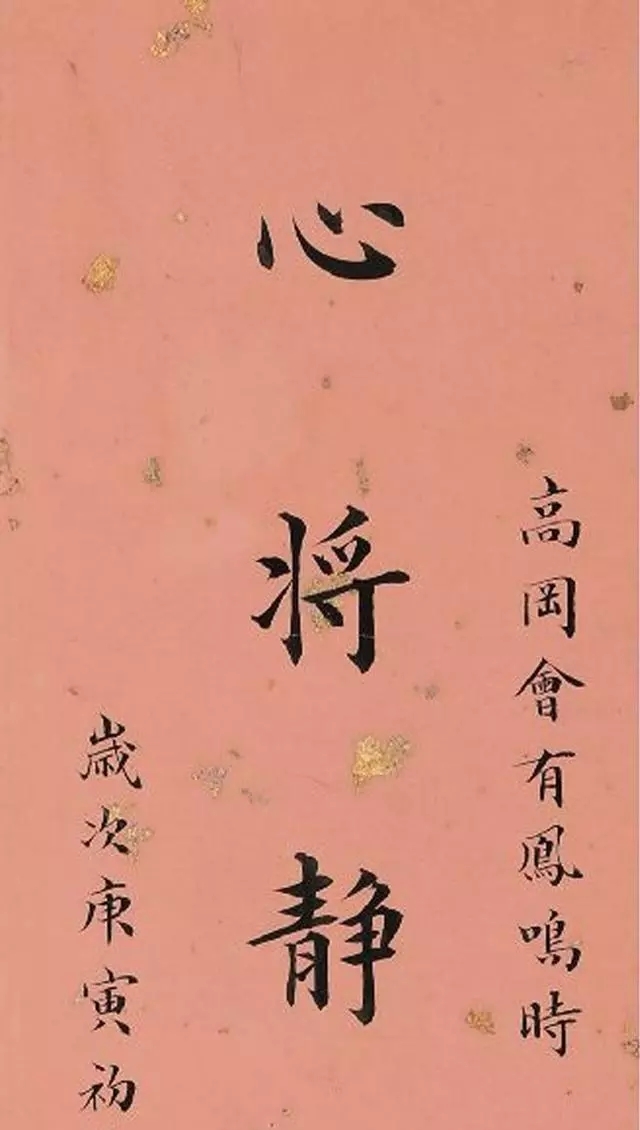 高岡會有鳳鳴時
心将静
歲次庚寅初